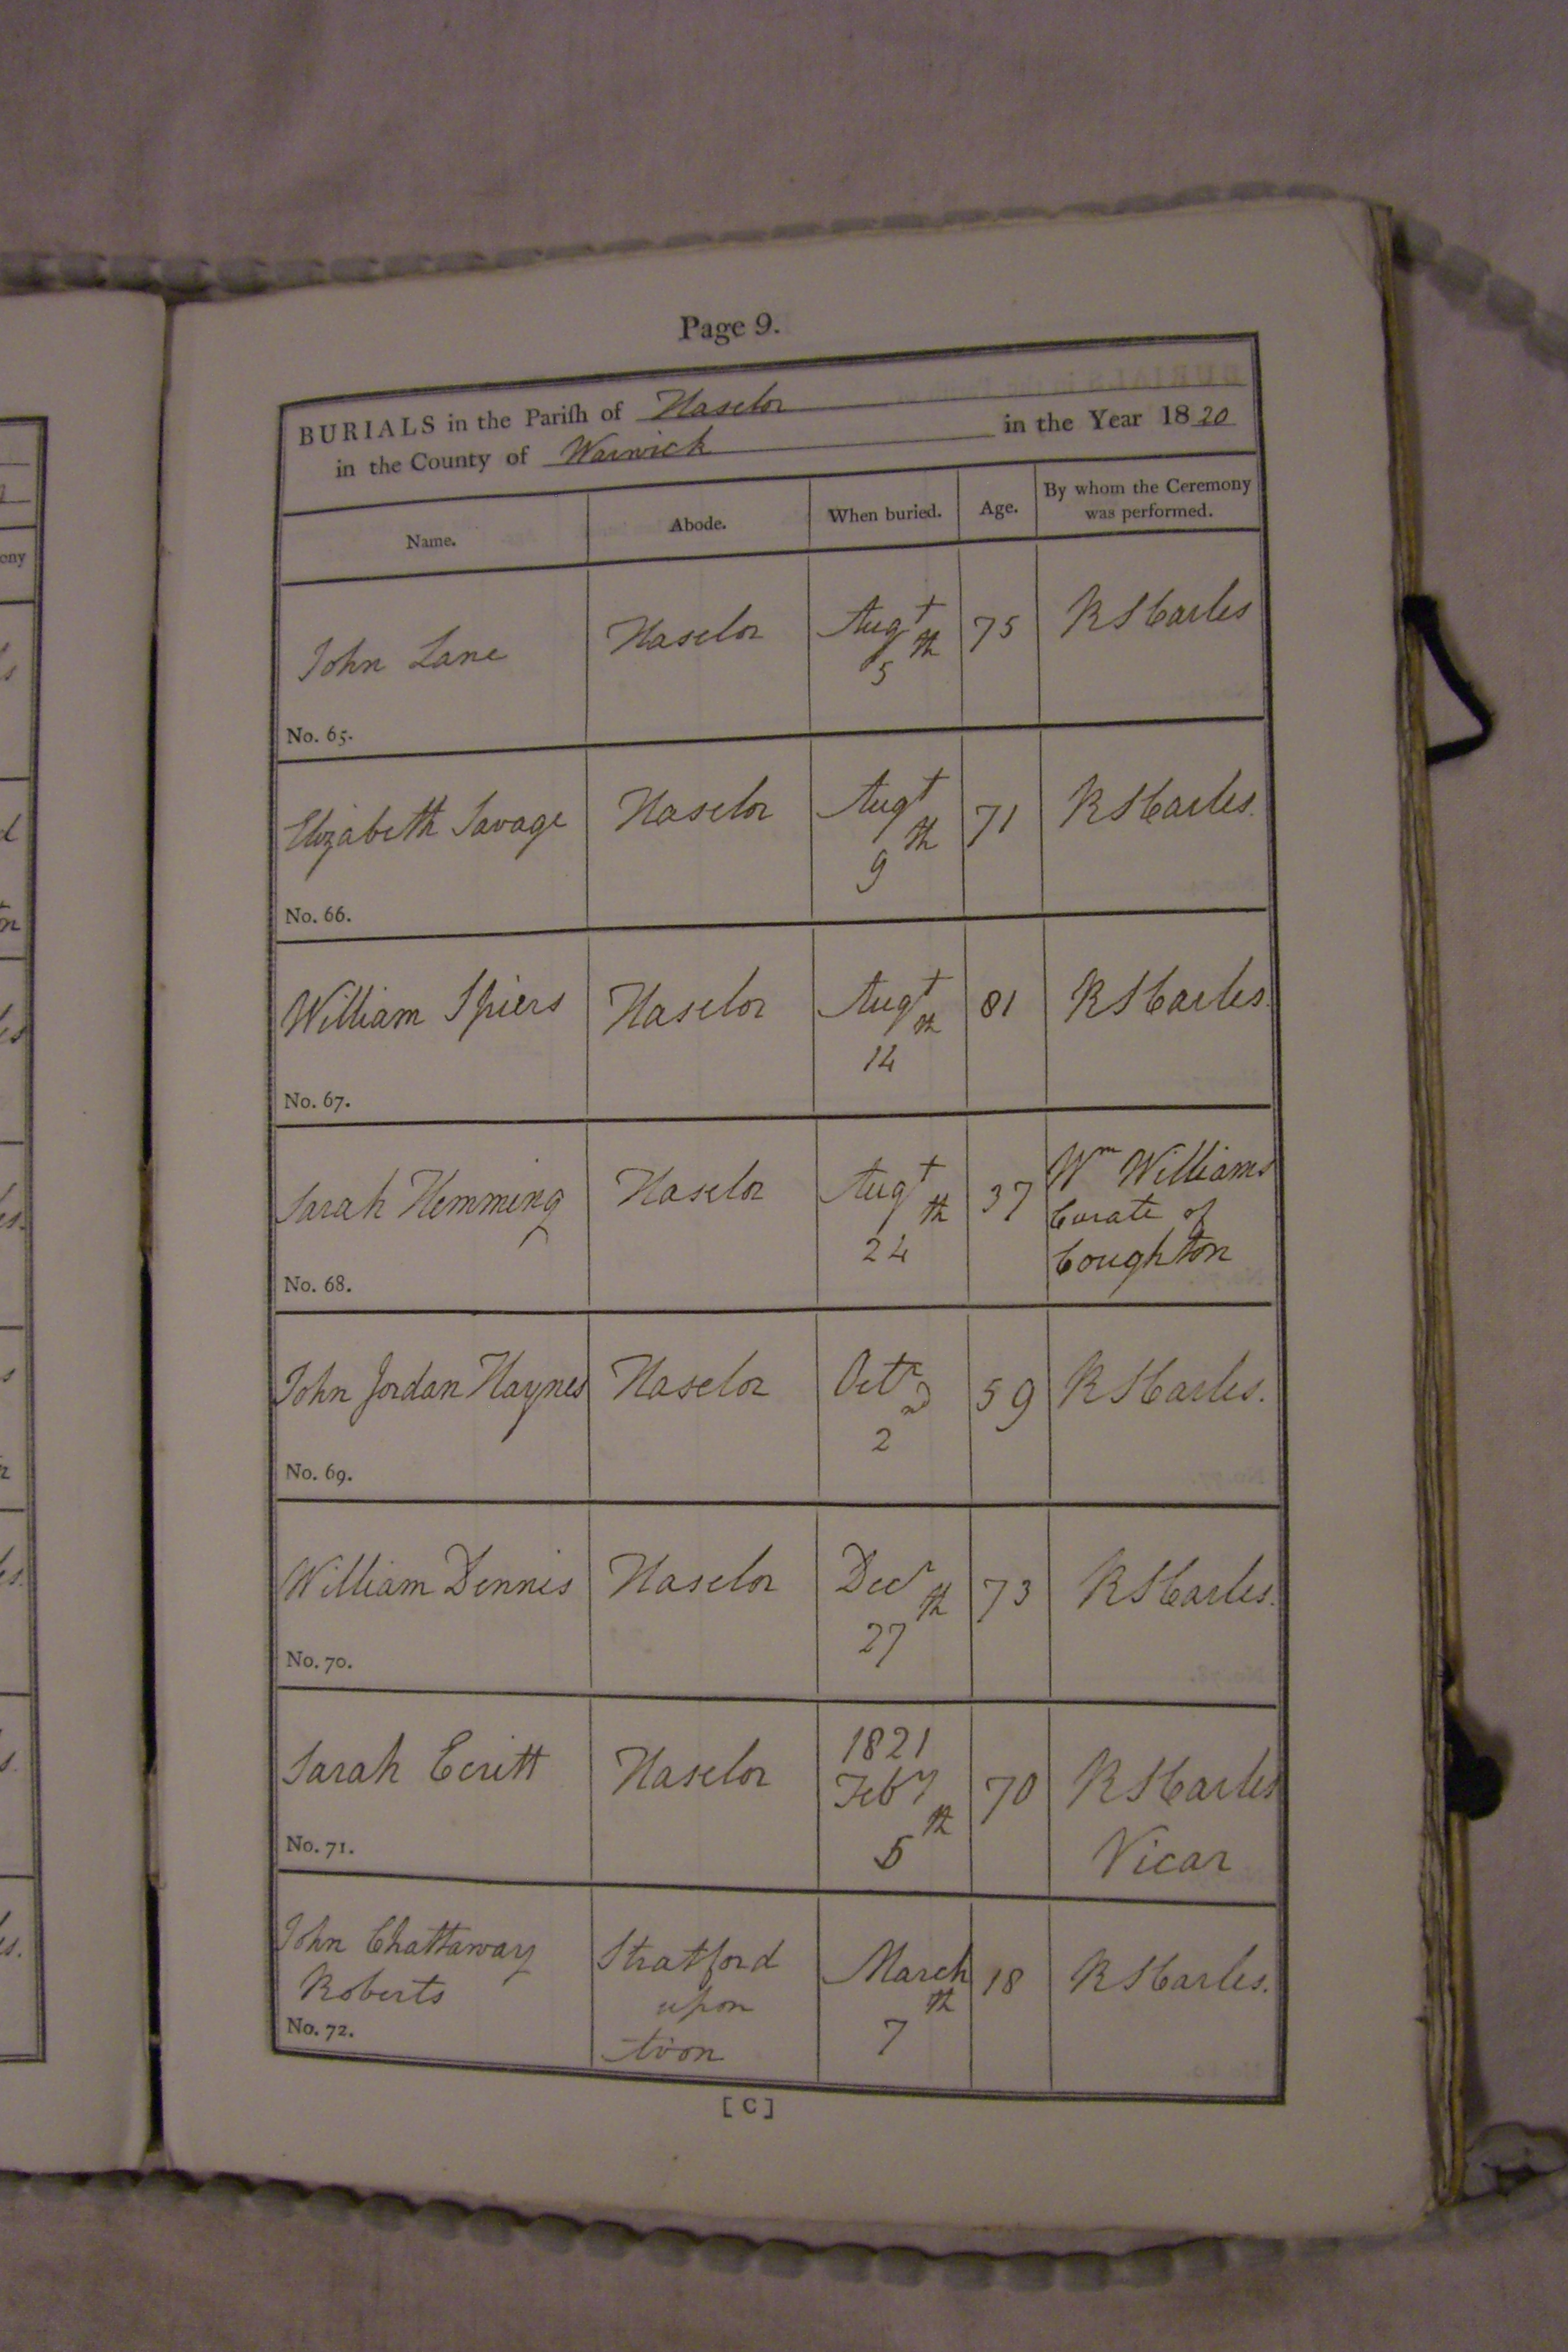 Page 9.
BURIALS in the Pariſh of Haselor
in the County of Warwick in the Year 1820
Name. Abode. When buried. Age. By whom the Ceremony
was performed.
John Lane Haselor Augt 5th 75 R S Carles
No. 65.
Elizabeth Savage Haselor Augt 9th 71 R S Carles.
No. 66.
William Spiers Haselor Augt 14th 81 R S Carles.
No. 67.
Sarah Hemming Haselor Augt 24th 37 Wm Williams
Curate of
Coughton
No. 68.
John Jordan Haynes Haselor Octr 2nd 59 R S Carles.
No. 69.
William Dennis Haselor Decr 27th 73 R S Carles.
No. 70.
Sarah Ecritt Haselor 1821
Feby 5th 70 R S Carles
Vicar
No. 71.
John Chattaway
Roberts Stratford
upon
Avon March 7th 18 R S Carles.
No. 72.
[ C ]